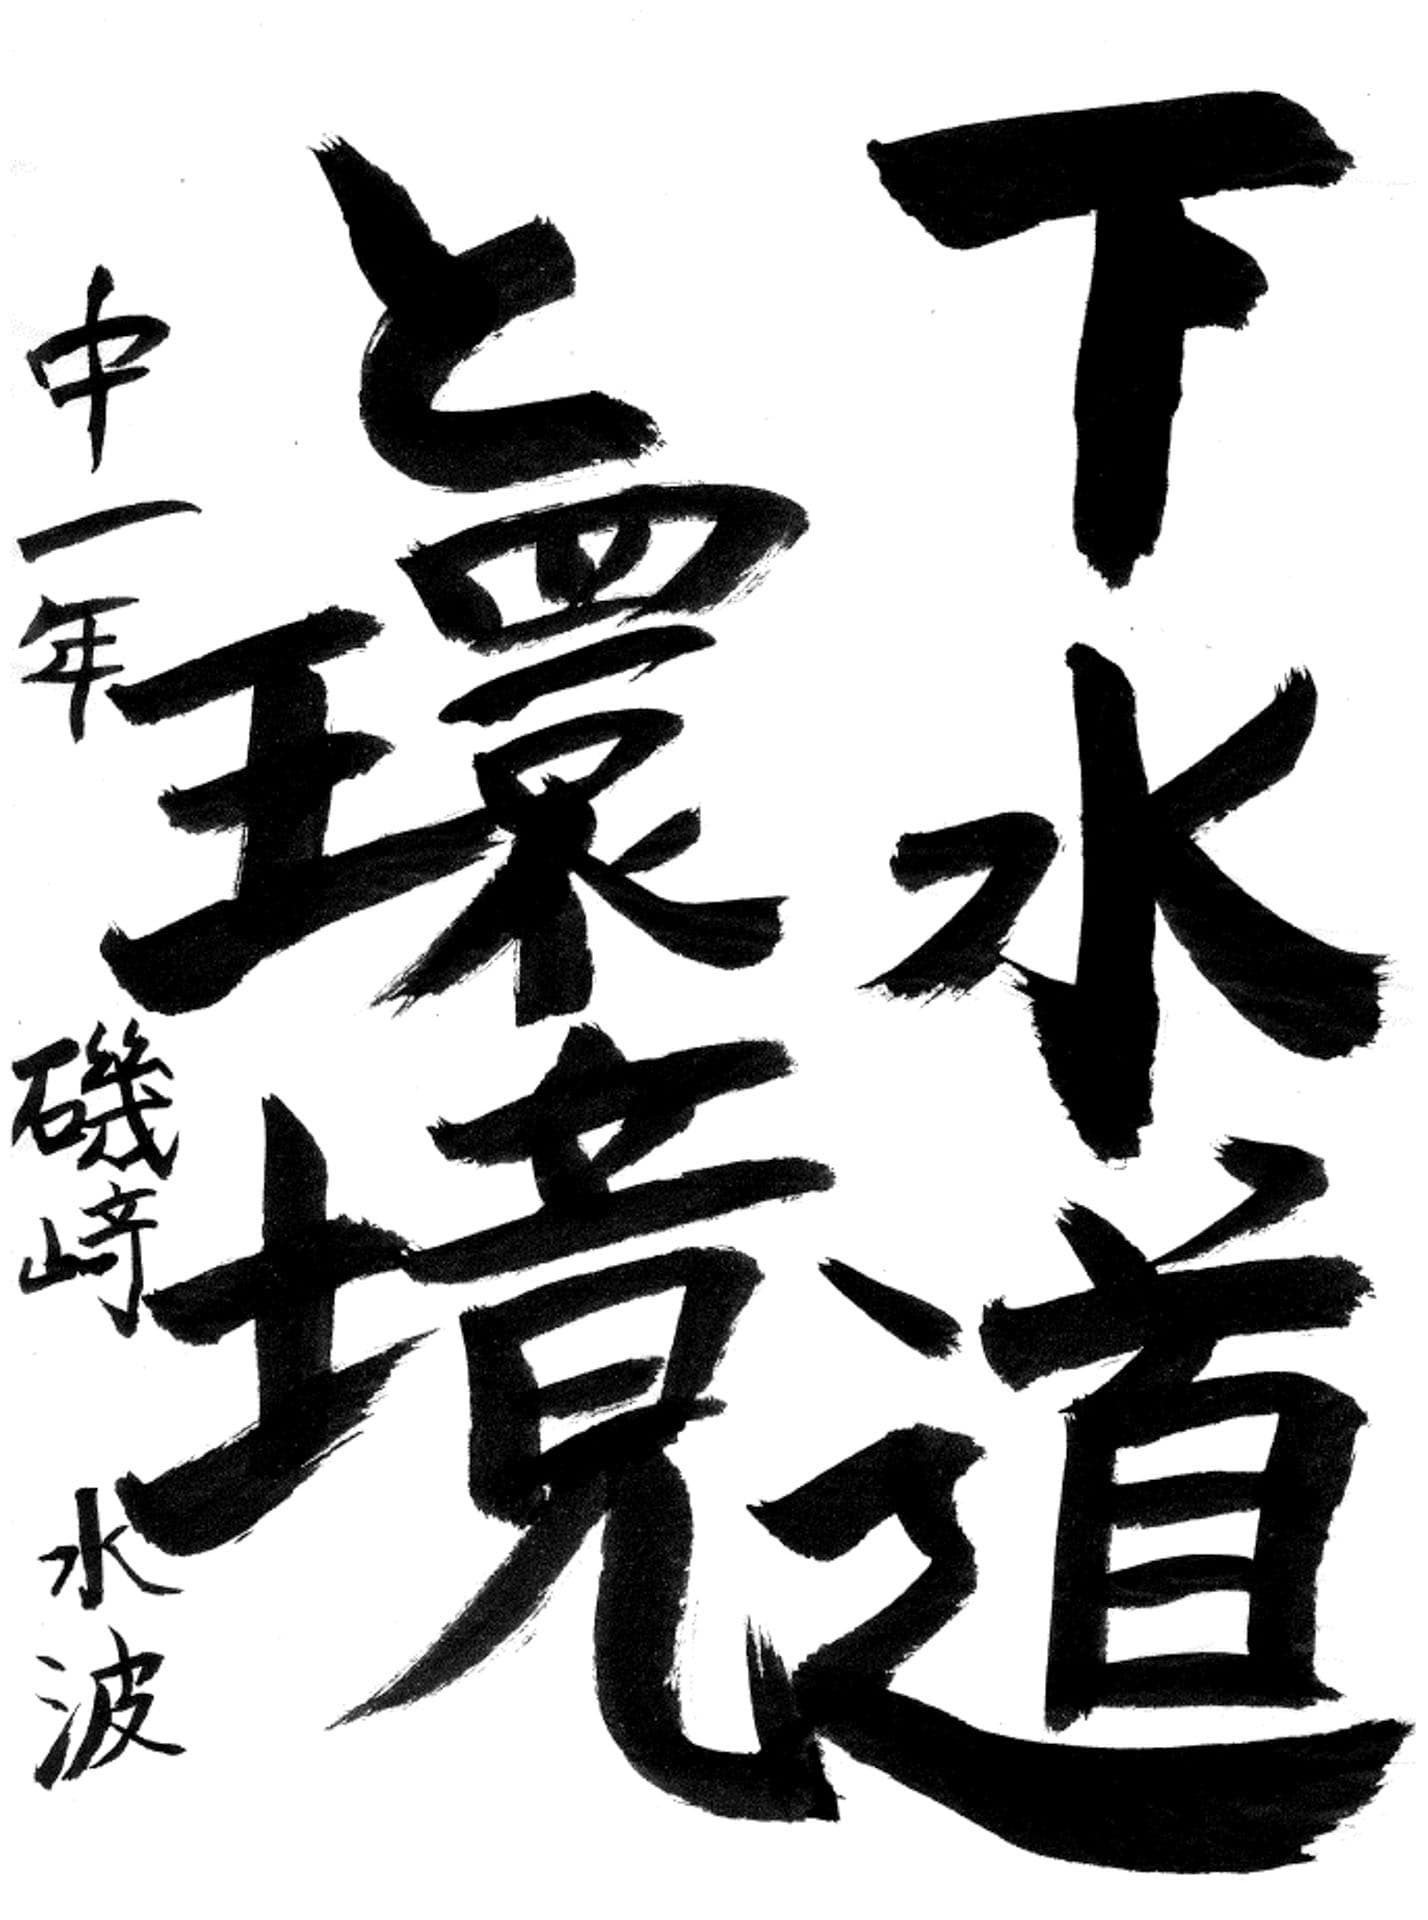 下水道
と環境
中一年 磯﨑 水波